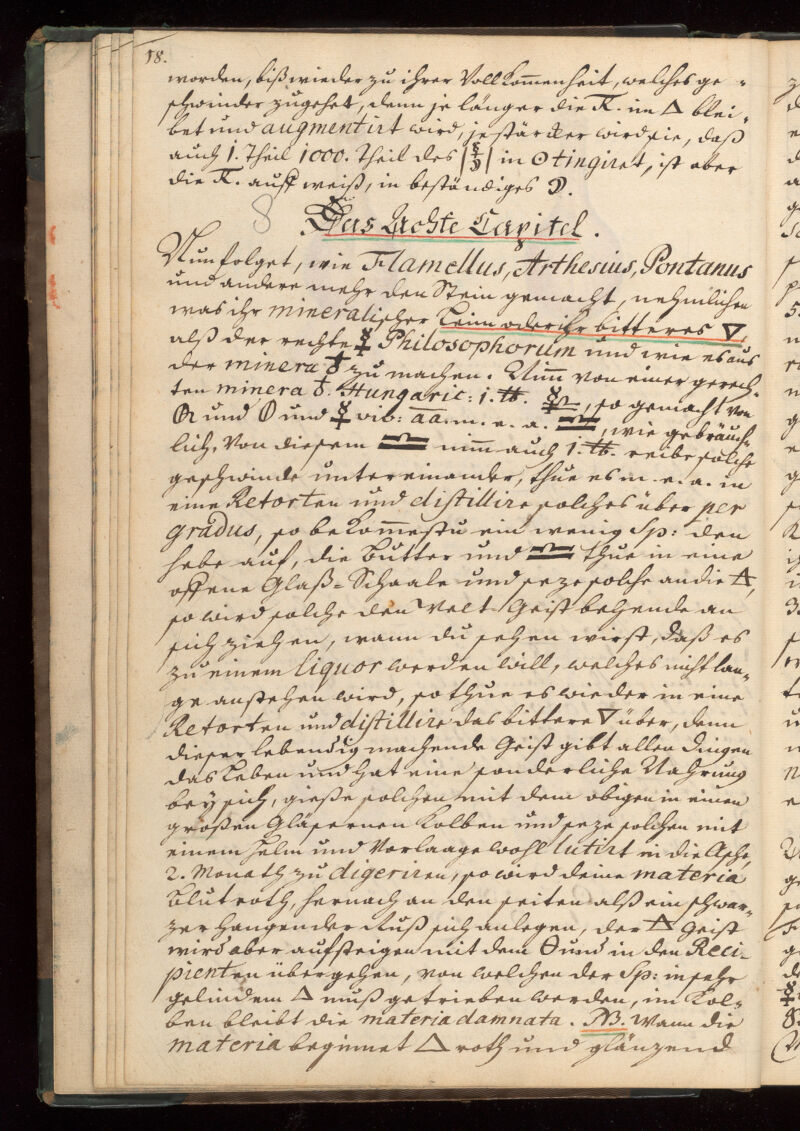 18.
worden, biß wieder zu ihrer Vollkom̅enheit, welches ge-
schwinder zugehet, denn je länger die R. im 🜂 blei-
bet und augmentirt wird, je stärcker wird sie, daß
auch 1. Theil 1000. Theil des in ☉ tingiret, ist aber
die R. auf weiß, in beständiges ☽.
8
Das Achte Capitel.
Nun folget, wie Flamellus, Arthesius, Pontanus
und andere mehr den Stein gemacht, nehmlichen
was ihr mineralischer Leim oder ihr bitteres 🜄,
alß der rechte ☿ Philosophorum und wie es aus
der minera ♁ zu machen. Nim̅ von einer gerech-
ten minera ♁. Hungaric: 1. ℔. so gemacht von
und und ☿ viv: aa. m. e. a. wie gebräuch-
lich, von diesem nim̅ auch 1. ℔. reibe solche
geschwinde untereinander, thue es m. e. a. in
eine Retorten und distillire solches über per
gradus, so bekom̅estu ein wenig Sp: den
hebe auf, die Butter und thue in eine
offene Glaß-Schaale und seze solche an die 🜁,
so wird solche den Welt Geist behende an
sich ziehen, wann du sehen wirst, daß es
zu einem liquor werden will, welches nicht lan-
ge anstehen wird, so thue es wieder in eine
Retorten und distillire das bittere 🜄 über, denn
dieser lebendig machende Geist gibt allen Dingen
das Leben und hat eine sonderliche Nahrung
bey sich, gieße solchen mit dem obigen in einen
großen Gläsernen Kolben und seze solchen mit
einem Helm und Vorlaage wohl lutirt in die Asche,
2. Monath zu digeriren, so wird deine materia
Blutroth, hernach an den seiten alß ein schwar-
zer hangender Ruß sich anlegen, der 🜁 Geist
wird aber aufsteigen mit dem und in den Reci-
pienten übergehen, von welchen der Sp: in sehr
gelindem 🜂 muß getrieben werden, im Kol-
ben bleibt die materia damnata. NB. Wann die
materia beginnet 🜂 roth und glänzend